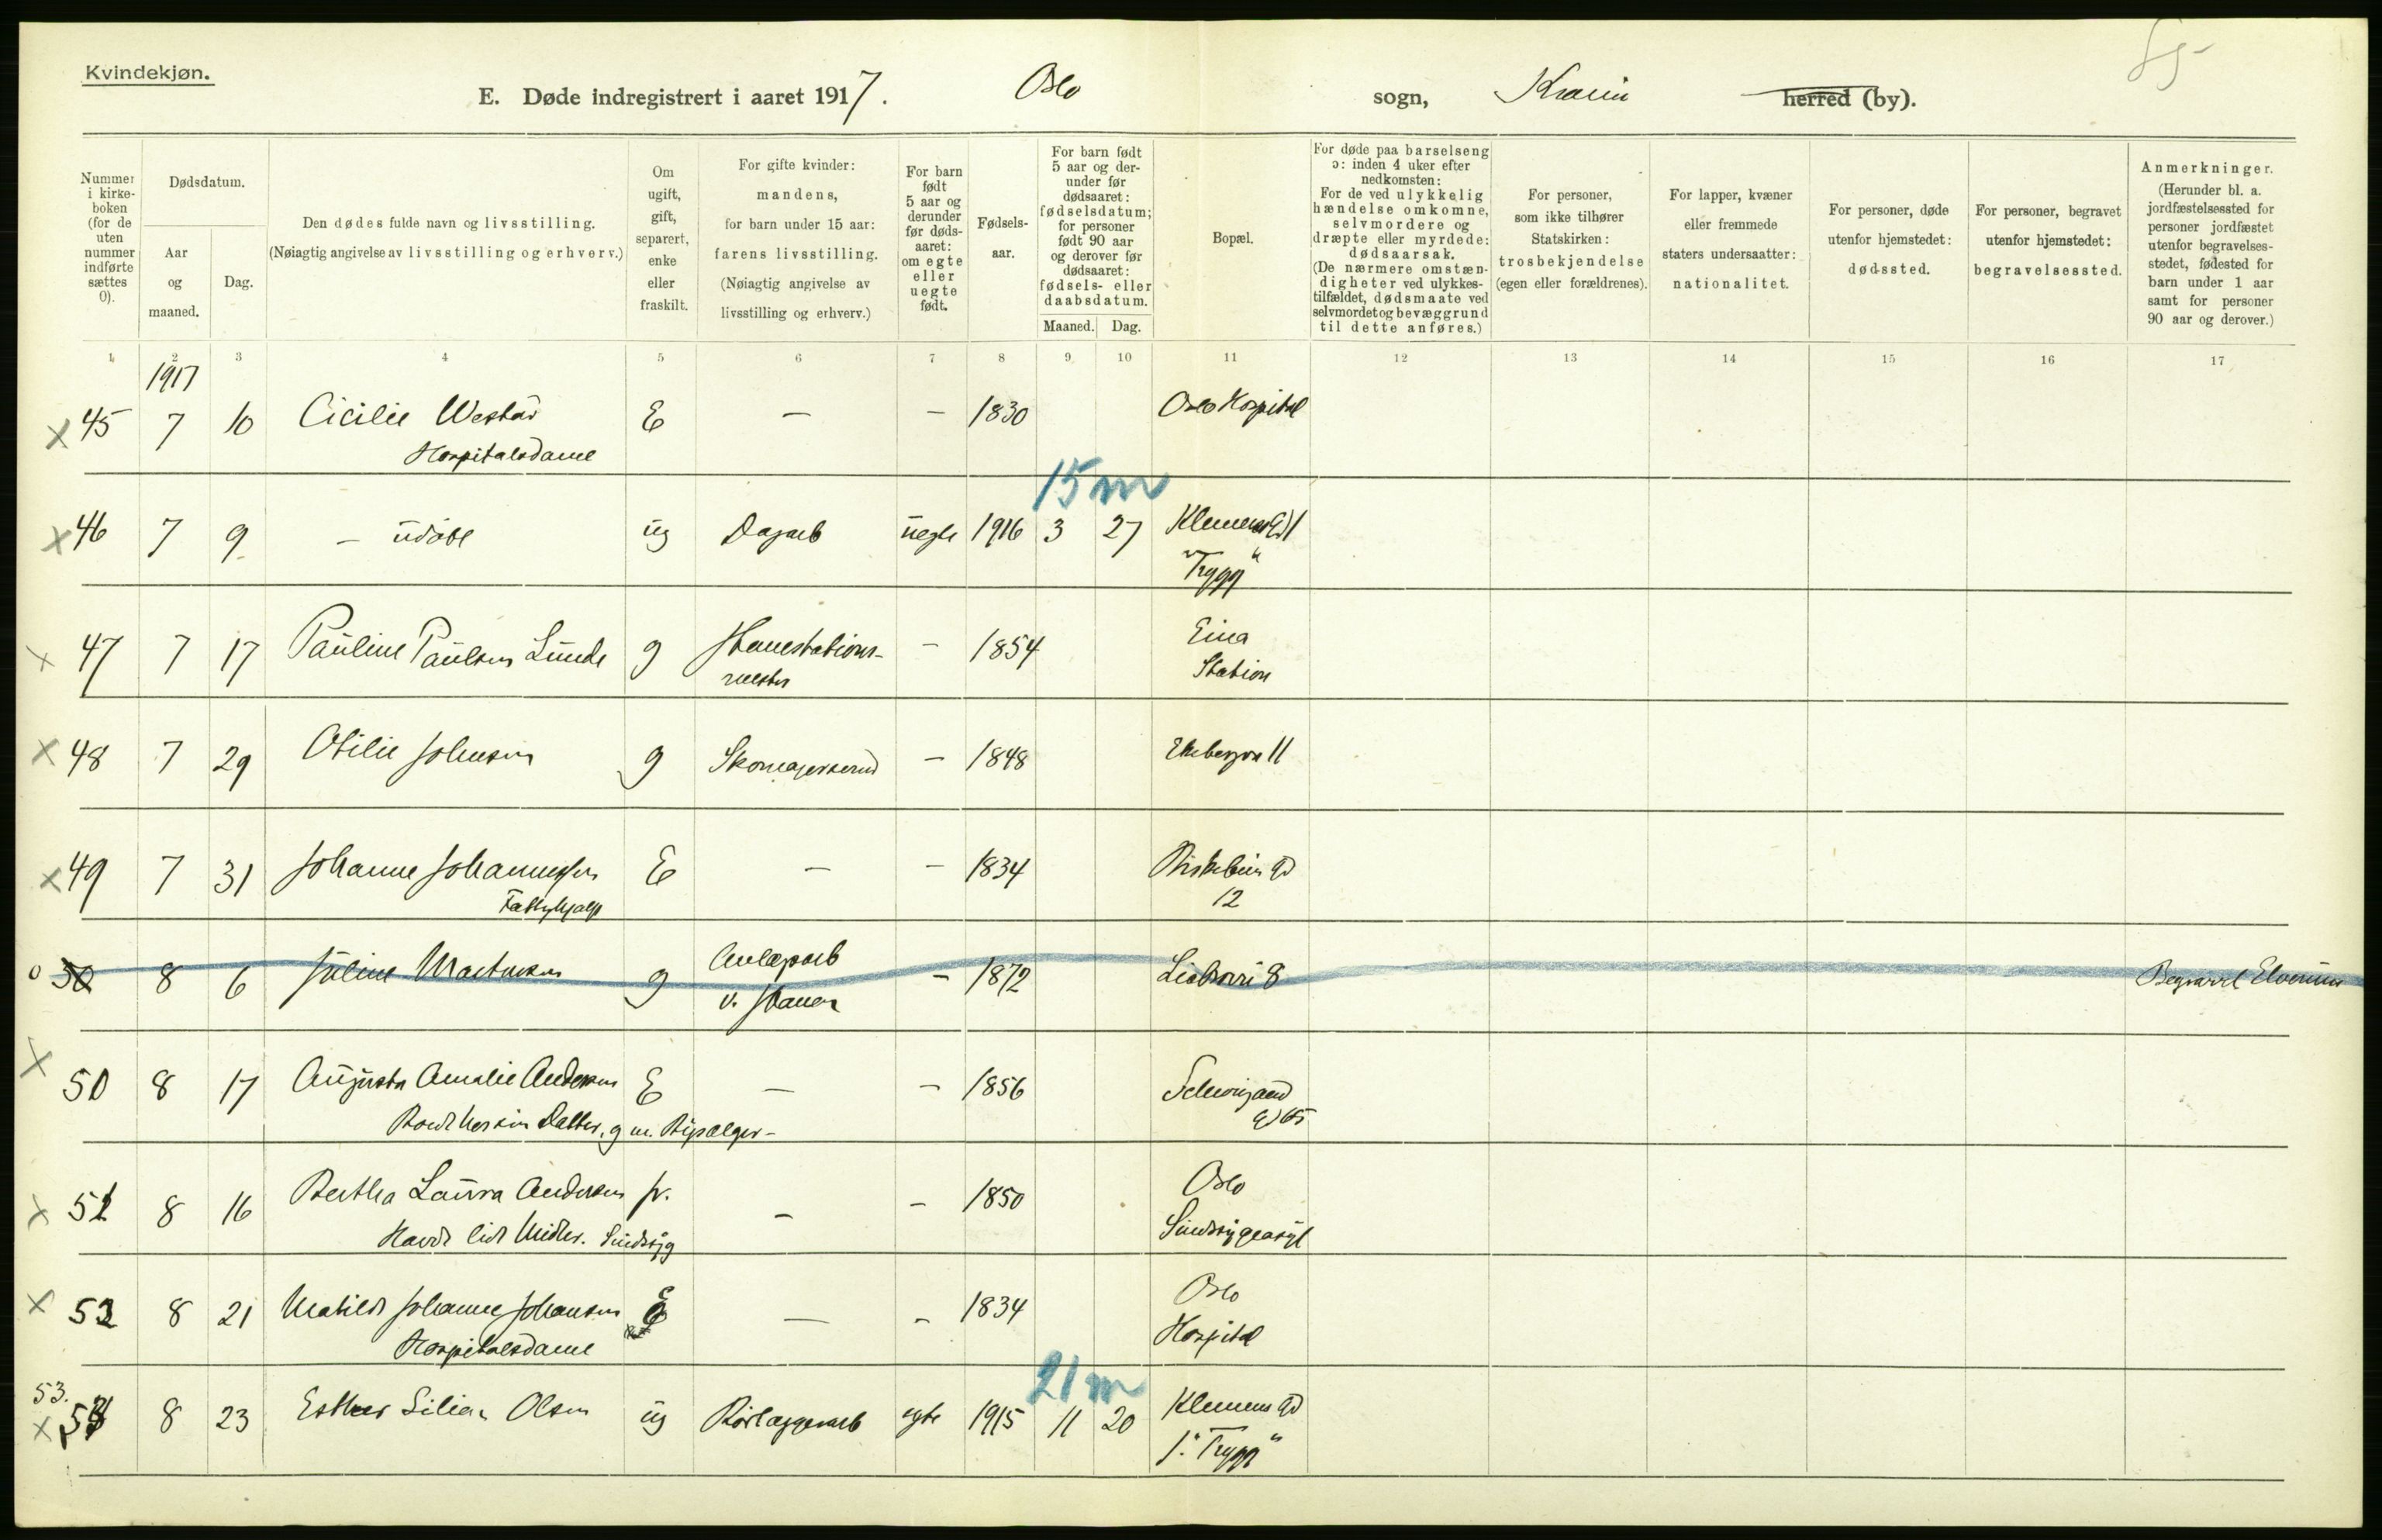 Kvindekjøn.
E. Døde indregistrert i aaret 1917. Oslo sogn, Krania herred (by).
Nummer i kirke-boken (for de uten nummer indførte sættes 0).
Dødsdatum.
Aar og maaned.
Dag.
Den dødes fulde navn og livsstilling.
(Nøiagtig angivelse av livsstilling og erhverv.)
Om ugift, gift, separert, enke eller fraskilt.
For gifte kvinder: mandens, for barn under 15 aar: farens livsstilling.
(Nøiagtig angivelse av livsstilling og erhverv.)
For barn født 5 aar og derunder før døds-aaret: om egte eller uegte født.
Fødsels-aar.
For barn født 5 aar og der-under før dødsaaret: fødselsdatum; for personer født 90 aar og derover før dødsaaret: fødsels- eller daabsdatum.
Maaned. Dag.
Bopæl.
For døde paa barselseng ɔ: inden 4 uker efter nedkomsten:
For de ved ulykkelig hændelse omkomne, selvmordere og dræpte eller myrdede: dødsaarsak.
(De nærmere omstæn-digheter ved ulykkes-tilfældet, dødsmaate ved selvmordet og bevæggrund til dette anføres.)
For personer, som ikke tilhører Statskirken: trosbekjendelse (egen eller forældrenes).
For lapper, kvæner eller fremmede staters undersaatter: nationalitet.
For personer, døde utenfor hjemstedet: dødssted.
For personer, begravet utenfor hjemstedet: begravelsessted.
Anmerkninger.
(Herunder bl. a. jordfæstelsessted for personer jordfæstet utenfor begravelses-stedet, fødested for barn under 1 aar samt for personer 90 aar og derover.)
1 2 3 4 5 6 7 8 9 10 11 12 13 14 15 16 17
1917
x 45 7 10 Cicilie Westad E — – 1830 Oslo Hospital
Hospitalsdame
15 m
x 46 7 9 – udøbt ug Dagarb uegte 1916 3 27 Klemens Gd 1
"Trygg"
x 47 7 17 Pauline Paulsen Lunde g Stations-
mester – 1854 Eina
Station
x 48 7 29 Otilie Johnsen g Skomagersvend – 1848 Ekebergvn 11
x 49 7 31 Johanne Johannessen E — – 1834 Biskebins Gd
Fattighjælp 12
0 50 8 6 Juline Martinsen g Anlægsarb
v. – 1872 8 Begravet Elverum
x 50 8 17 Augusta Amalie Andersen E — – 1856 Schweigaard
Datter, g m. Gd 65
x 51 8 16 Bertha Laura Andersen fr. – – 1850 Oslo
Havde lidt Midler. Sindsyg Sindssygeasyl
x 52 8 21 Matilde Johanne Johansen E — – 1834 Oslo
Hospitalsdame Hospital
21 m
53.
x 54 8 23 Esther Lilian Olsen ug Rørlæggerarb egte 1915 11 20 Klemens Gd
1. "Trygg"